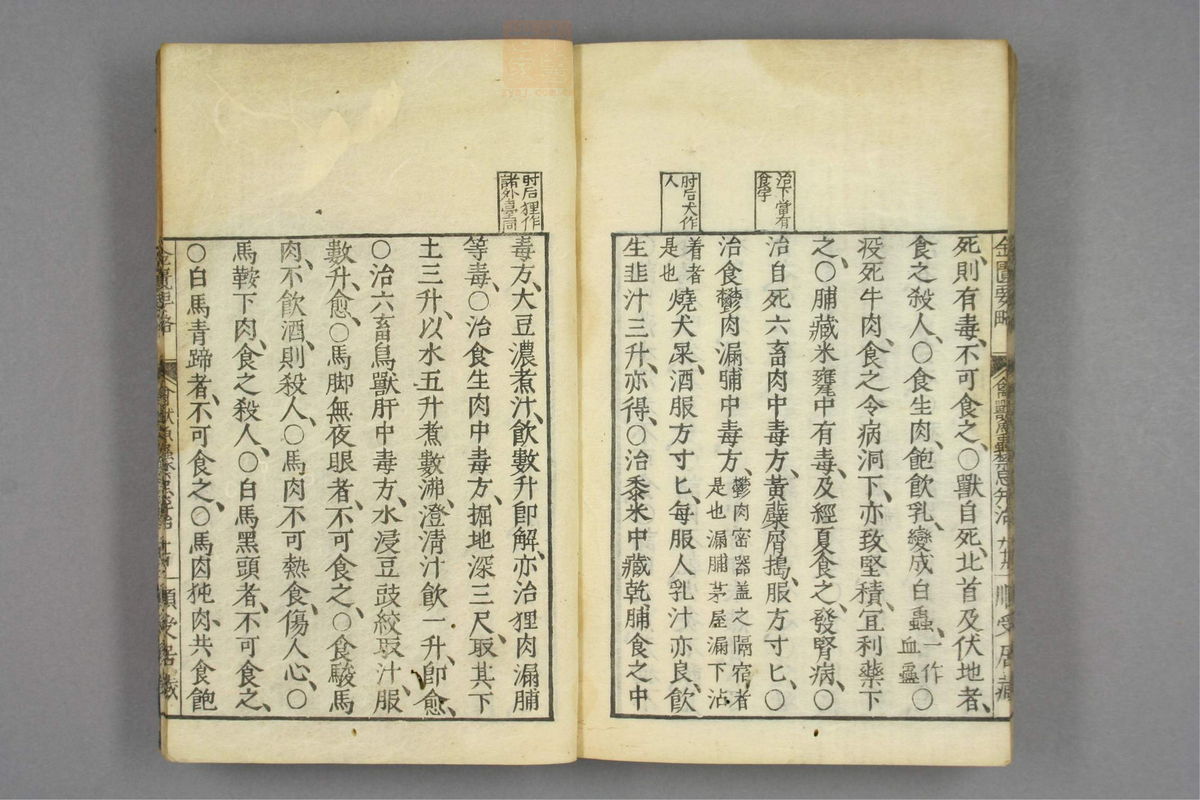 治下當有
食字
肘后犬作
人
死、則有毒、不可食之、○獸自死、北首及伏地者、
食之殺人、○食生肉、飽飲乳、變成白蟲、一作血蠱○
疫死牛肉、食之令病洞下、亦致堅積、宜利藥下
之、○脯藏米甕中有毒、及經夏食之、發腎病、○
治自死六畜肉中毒方、黃蘗屑搗、服方寸匕、○
治食鬱肉漏脯中毒方、鬱肉密器盖之隔宿者是也漏脯茅屋漏下沾
着者是也燒犬屎、酒服方寸匕、每服人乳汁亦良、飲
生韭汁三升、亦得、○治黍米中藏乾脯食之中
肘后狸作
諸外臺同
毒方、大豆濃煮汁、飲數升即解、亦治狸肉漏脯
等毒、○治食生肉中毒方、掘地深三尺、取其下
土三升、以水五升煮數沸、澄清汁飲一升、即愈、
○治六畜鳥獸肝中毒方、水浸豆豉絞取汁、服
數升、愈、○馬脚無夜眼者、不可食之、○食駿馬
肉、不飲酒、則殺人、○馬肉不可熱食、傷人心、○
馬鞍下肉、食之殺人、○白馬黑頭者、不可食之、
○白馬青蹄者、不可食之、○馬肉㹠肉、共食飽